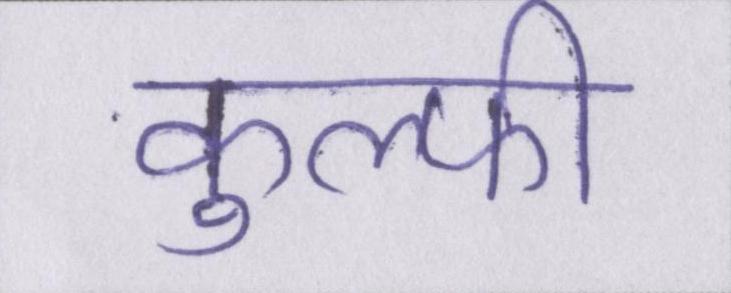 कुल्फी